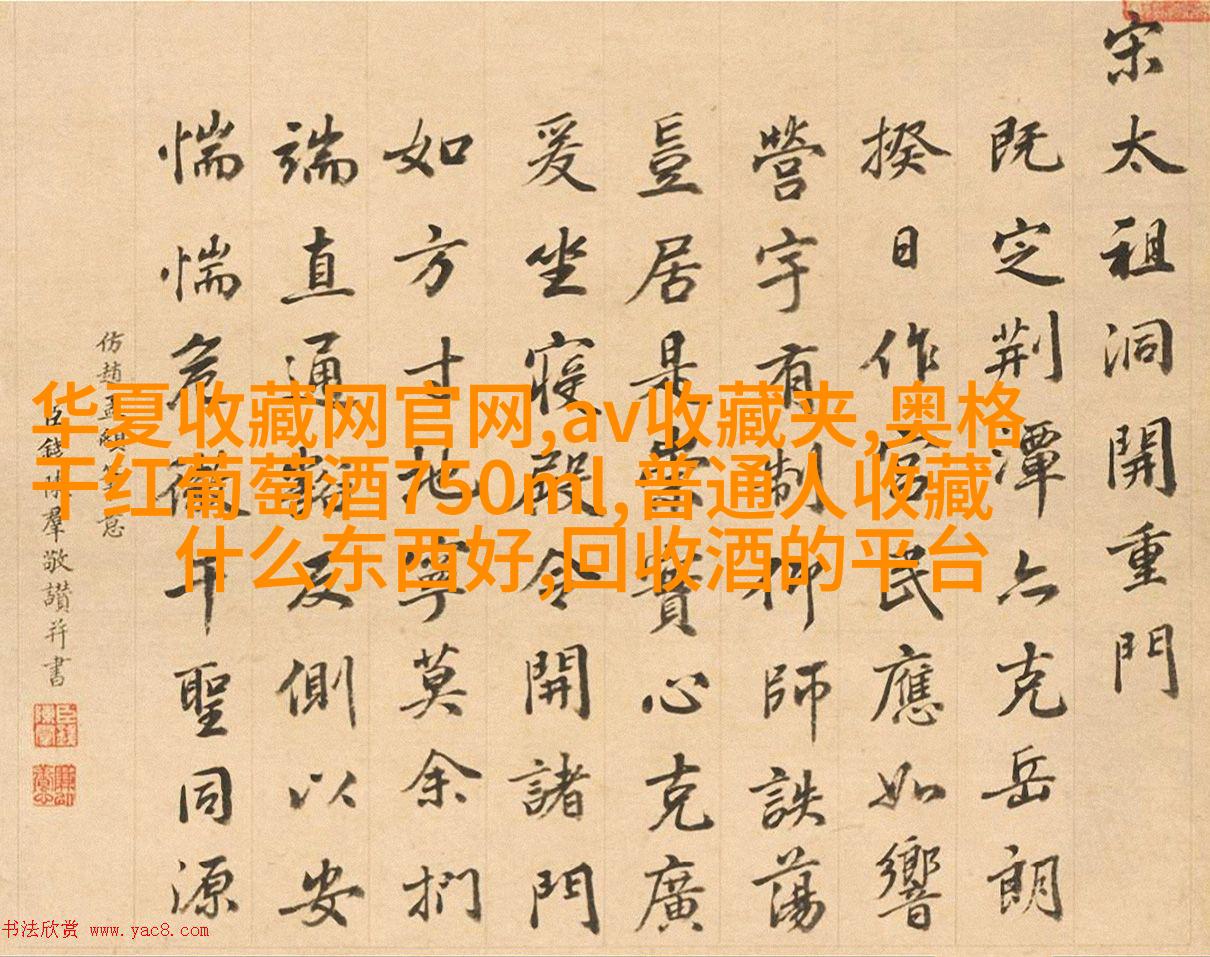 宋太祖洞開重門
既定荆潭亦克岳朗
揆日作宫民應如響
營宇有制仰師詄蕩
豈居是崇實心克廣
爰坐寝殿令開諸門
如方寸地寧莫余捫
端直通豁反側以安
惴惴危微千聖同源
仿趙孟頫筆意
臣錢陳羣敬讚并書
华夏收藏网官网,av收藏夹,奥格
干红葡萄酒750ml,普通人收藏
什么东西好,回收酒的平台
书法欣赏 www.yac8.com